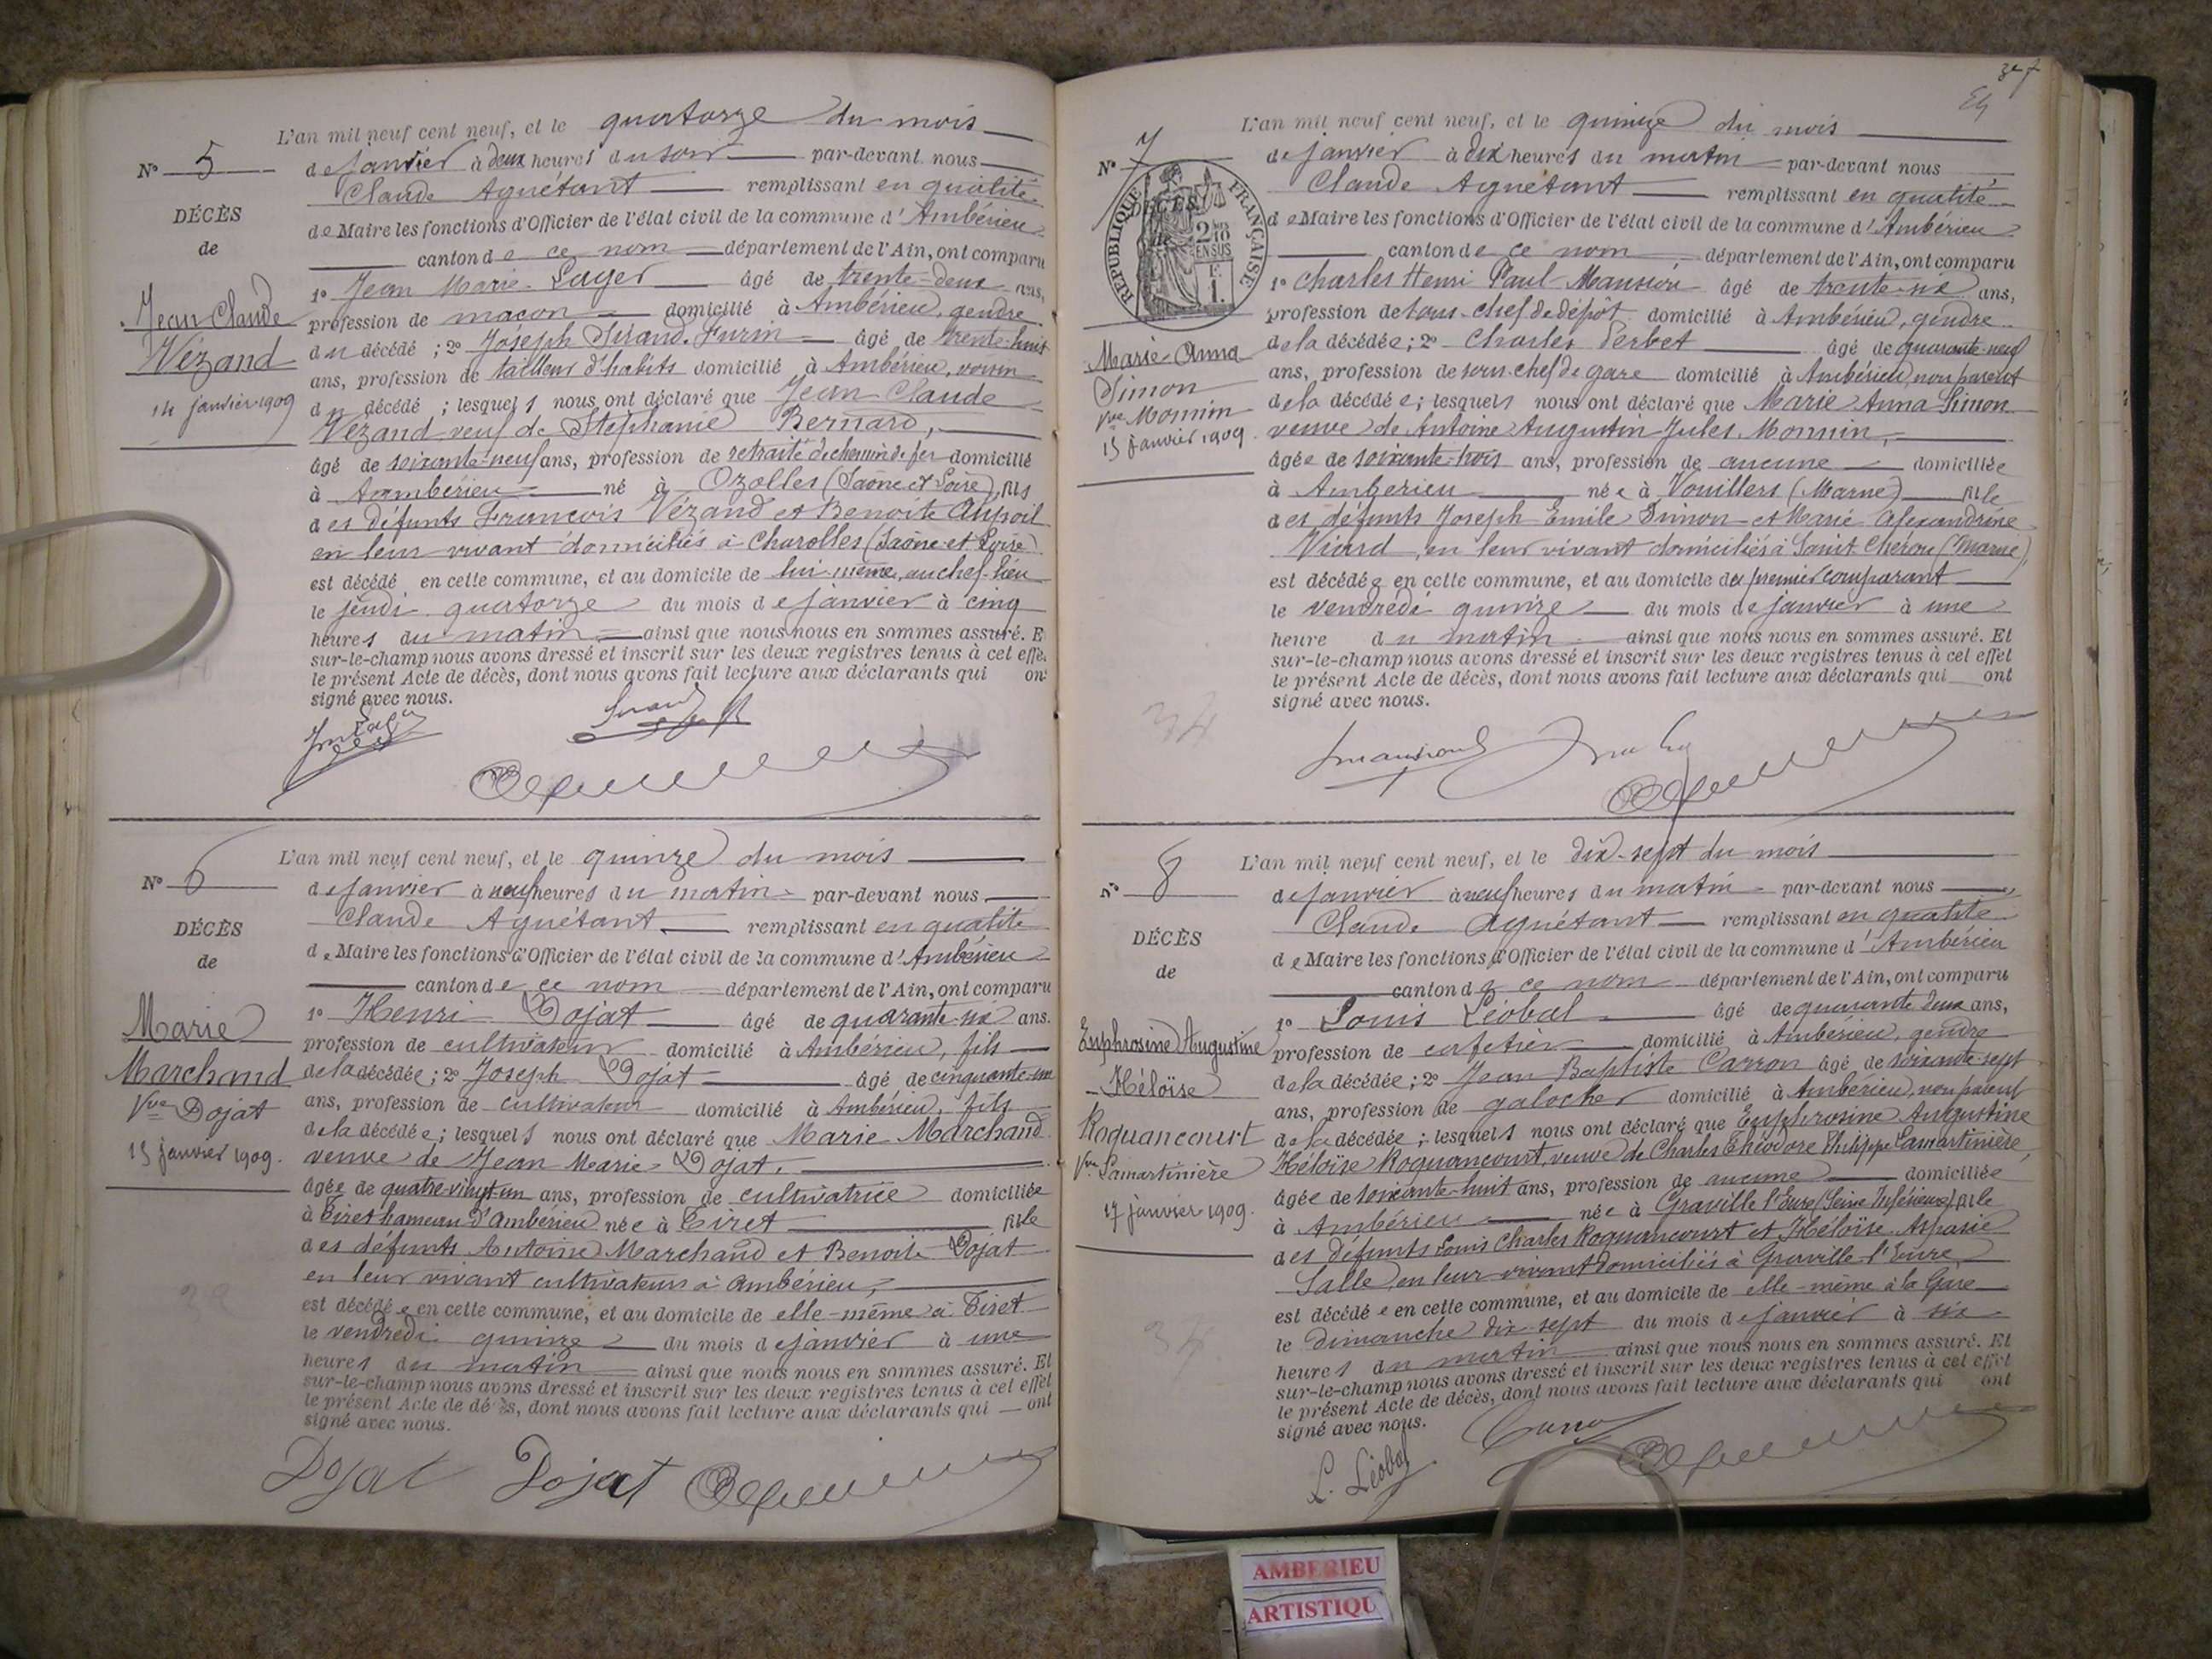 L'an mil neuf cent neuf, et le quatorze du mois
N° 5
de janvier à deux heures du soir par-devant nous
Claude Aguétant remplissant en qualité
DÉCÈS
de Maire les fonctions d'Officier de l'état civil de la commune d'Ambérieu
de
canton de ce nom département de l'Ain, ont comparu
Jean Claude
Vézand
14 janvier 1909
1° Jean Marie Layer âgé de trente-deux ans,
profession de maçon domicilié à Ambérieu, gendre
du décédé ; 2° Joseph Surand Furin âgé de trente-huit
ans, profession de tailleur d'habits domicilié à Ambérieu, voisin
du décédé ; lesquels nous ont déclaré que Jean Claude
Vézand veuf de Stéphanie Bernard,
âgé de soixante-neuf ans, profession de retraité de chemin de fer domicilié
à Ambérieu né à Ozolles (Saône et Loire), fils
des défunts François Vézand et Benoite Aupoil
en leur vivant domiciliés à Charolles (Saône-et-Loire)
est décédé en cette commune, et au domicile de lui-même, au chef-lieu
le jeudi quatorze du mois de janvier à cinq
heures du matin ainsi que nous nous en sommes assuré. E
sur-le-champ nous avons dressé et inscrit sur les deux registres tenus à cet effe
le présent Acte de décès, dont nous avons fait lecture aux déclarants qui on
signé avec nous.
L'an mil neuf cent neuf, et le quinze du mois
N° 6
de janvier à neuf heures du matin par-devant nous
Claude Aguétant remplissant en qualité
DÉCÈS
de Maire les fonctions d'Officier de l'état civil de la commune d'Ambérieu
de
canton de ce nom département de l'Ain, ont comparu
Marie
Marchand
Vve Dojat
15 janvier 1909.
1° Henri Dojat âgé de quarante-six ans.
profession de cultivateur domicilié à Ambérieu, fils
de la décédée ; 2° Joseph Dojat âgé de cinquante-un
ans, profession de cultivateur domicilié à Ambérieu, fils
de la décédée ; lesquels nous ont déclaré que Marie Marchand
veuve de Jean Marie Dojat,
âgée de quatre-vingt-un ans, profession de cultivatrice domiciliée
à Tiret hameau d'Ambérieu née à Tiret fille
des défunts Antoine Marchand et Benoite Dojat
en leur vivant cultivateurs à Ambérieu,
est décédée en cette commune, et au domicile de elle-même à Tiret
le vendredi quinze du mois de janvier à une
heures du matin ainsi que nous nous en sommes assuré. Et
sur-le-champ nous avons dressé et inscrit sur les deux registres tenus à cet effet
le présent Acte de décès, dont nous avons fait lecture aux déclarants qui ont
signé avec nous.
Dojat Dojat
L'an mil neuf cent neuf, et le quinze du mois
N° 7
de janvier à dix heures du matin par-devant nous
Claude Aguétant remplissant en qualité
RÉPUBLIQUE FRANÇAISE
DÉCÈS
de
2/10 EN SUS
de Maire les fonctions d'Officier de l'état civil de la commune d'Ambérieu
canton de ce nom département de l'Ain, ont comparu
Marie Anna
Simon
Vve Monnin
15 janvier 1909.
1° Charles Henri Paul Mansion âgé de trente-six ans,
profession de sous-chef de dépôt domicilié à Ambérieu, gendre
de la décédée ; 2° Charles Perbet âgé de quarante-neuf
ans, profession de sous-chef de gare domicilié à Ambérieu, non parent
de la décédée ; lesquels nous ont déclaré que Marie Anna Simon
veuve de Antoine Augustin Jules Monnin,
âgée de soixante-trois ans, profession de aucune domiciliée
à Ambérieu née à Vouillers (Marne) fille
des défunts Joseph Émile Simon et Marie Alexandrine
Viard, en leur vivant domiciliés à Saint-Chéron (Marne),
est décédée en cette commune, et au domicile du premier comparant
le vendredi quinze du mois de janvier à une
heure du matin ainsi que nous nous en sommes assuré. Et
sur-le-champ nous avons dressé et inscrit sur les deux registres tenus à cet effet
le présent Acte de décès, dont nous avons fait lecture aux déclarants qui ont
signé avec nous.
L'an mil neuf cent neuf, et le dix-sept du mois
N° 8
de janvier à neuf heures du matin par-devant nous
Claude Aguétant remplissant en qualité
DÉCÈS
de Maire les fonctions d'Officier de l'état civil de la commune d'Ambérieu
de
canton de ce nom département de l'Ain, ont comparu
Euphrosine Augustine
Héloïse
Roquancourt
Vve Lamartinière
17 janvier 1909.
1° Louis Léobal âgé de quarante-deux ans,
profession de cafetier domicilié à Ambérieu, gendre
de la décédée ; 2° Jean Baptiste Carron âgé de soixante-sept
ans, profession de galocher domicilié à Ambérieu, non parent
de la décédée ; lesquels nous ont déclaré que Euphrosine Augustine
Héloïse Roquancourt, veuve de Charles Théodore Philippe Lamartinière,
âgée de soixante-huit ans, profession de aucune domiciliée
à Ambérieu née à Graville l'Eure (Seine Inférieure) fille
des défunts Louis Charles Roquancourt et Héloïse Aspasie
Salle, en leur vivant domiciliés à Graville l'Eure
est décédée en cette commune, et au domicile de elle-même à la Gare
le dimanche dix-sept du mois de janvier à six
heures du matin ainsi que nous nous en sommes assuré. Et
sur-le-champ nous avons dressé et inscrit sur les deux registres tenus à cet effet
le présent Acte de décès, dont nous avons fait lecture aux déclarants qui ont
signé avec nous.
L. Léobal
AMBERIEU
ARTISTIQU